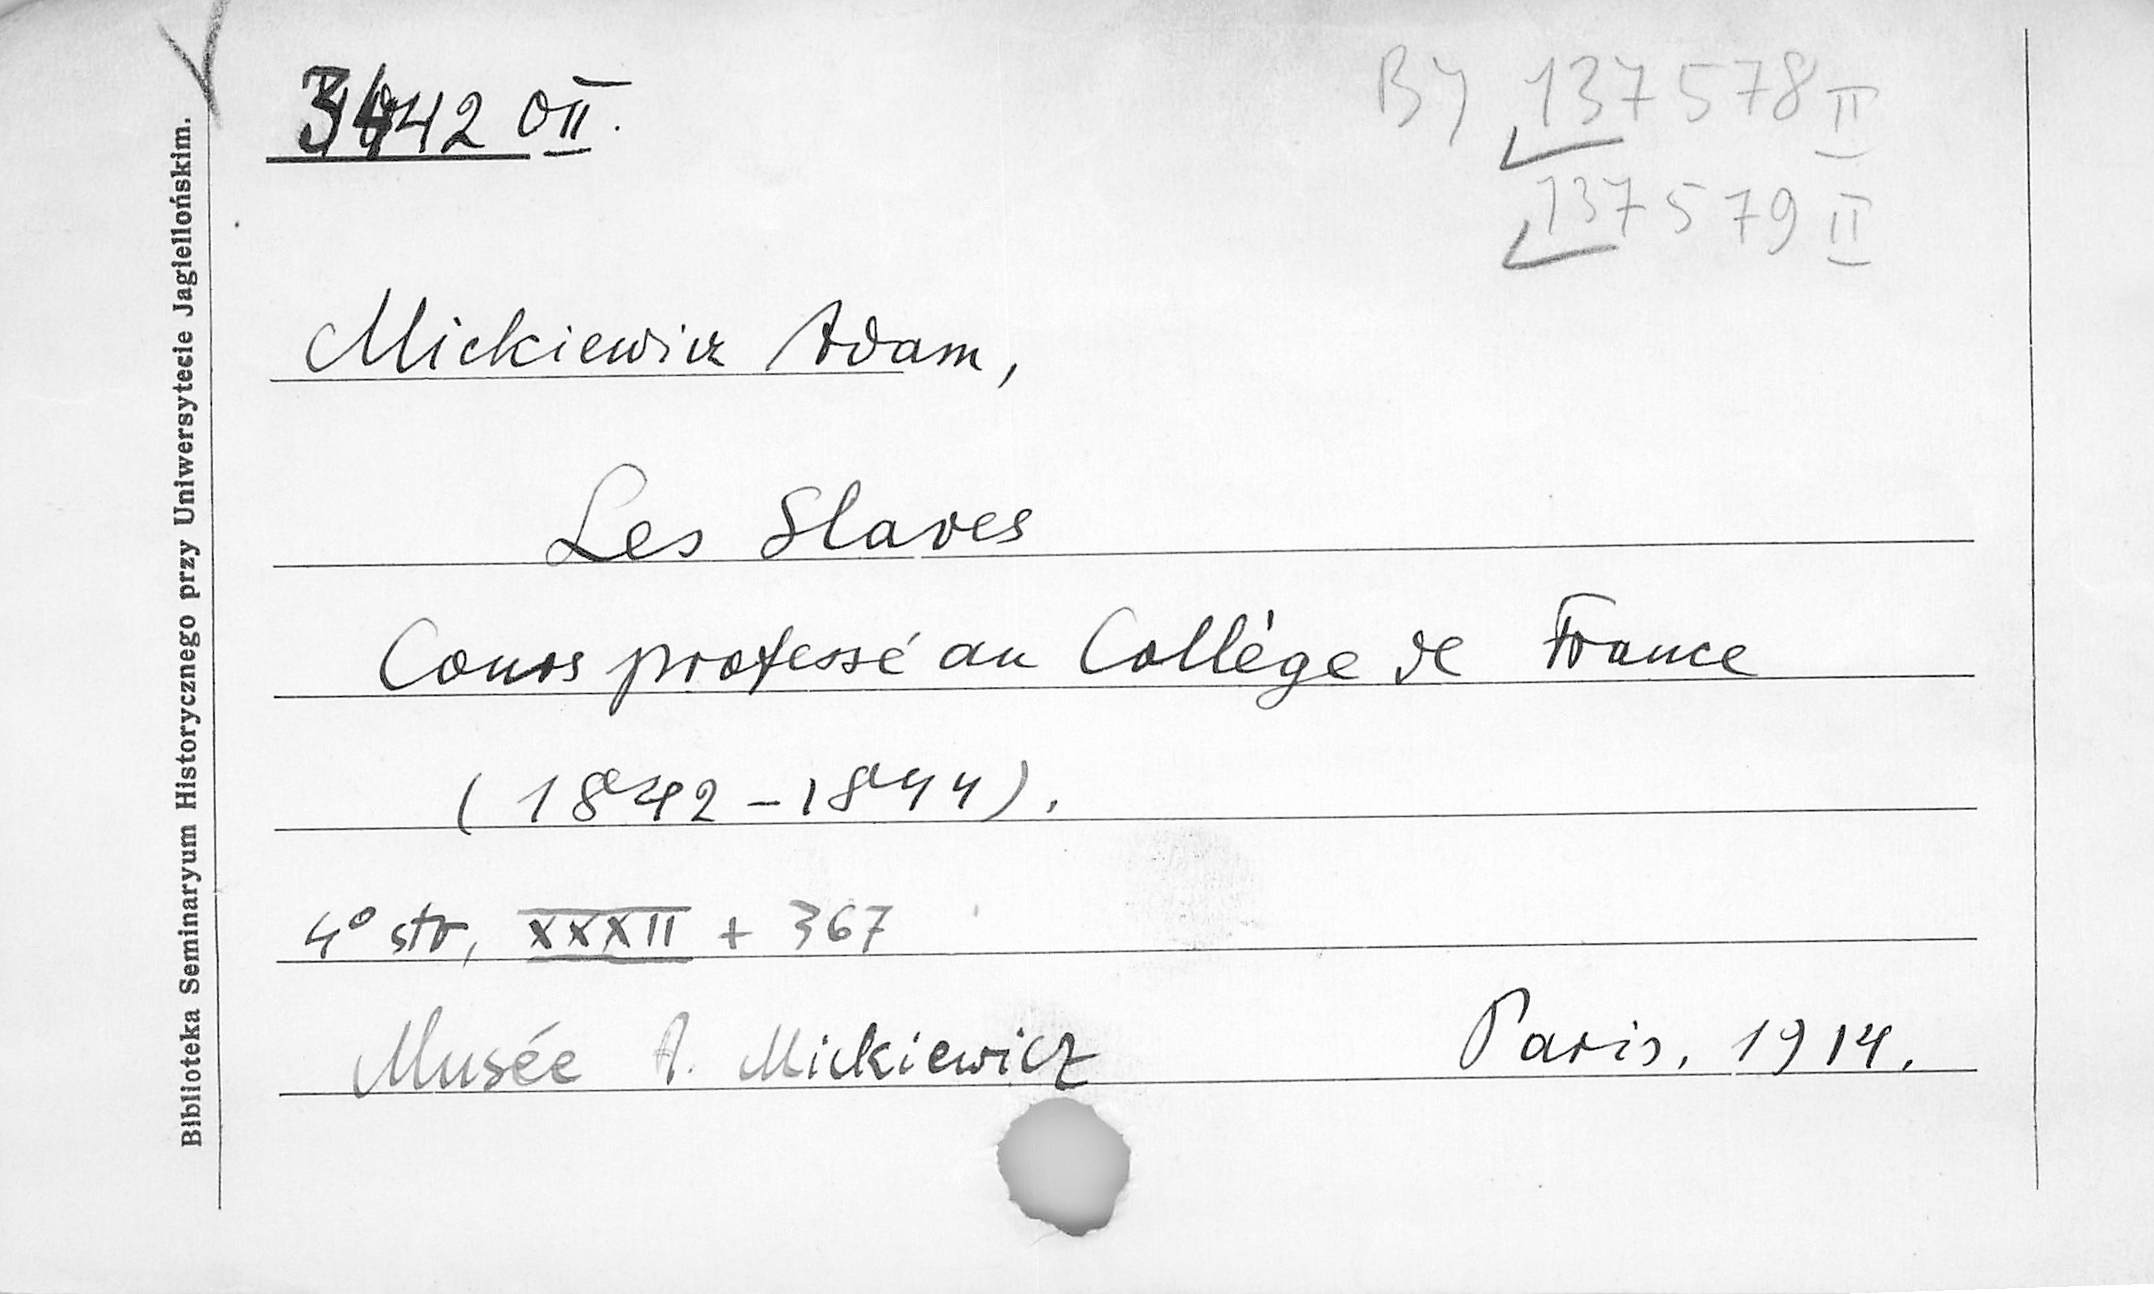 3442 OII.
BJ 137578 II
137579 II
Mickiewicz Adam,
Les Slaves
Cours professé au Collège de France
(1842-1844).
4° str, XXXII + 367
Musée A. Mickiewicz Paris, 1914.
Biblioteka Seminaryum Historycznego przy Uniwersytecie Jagiellońskim.